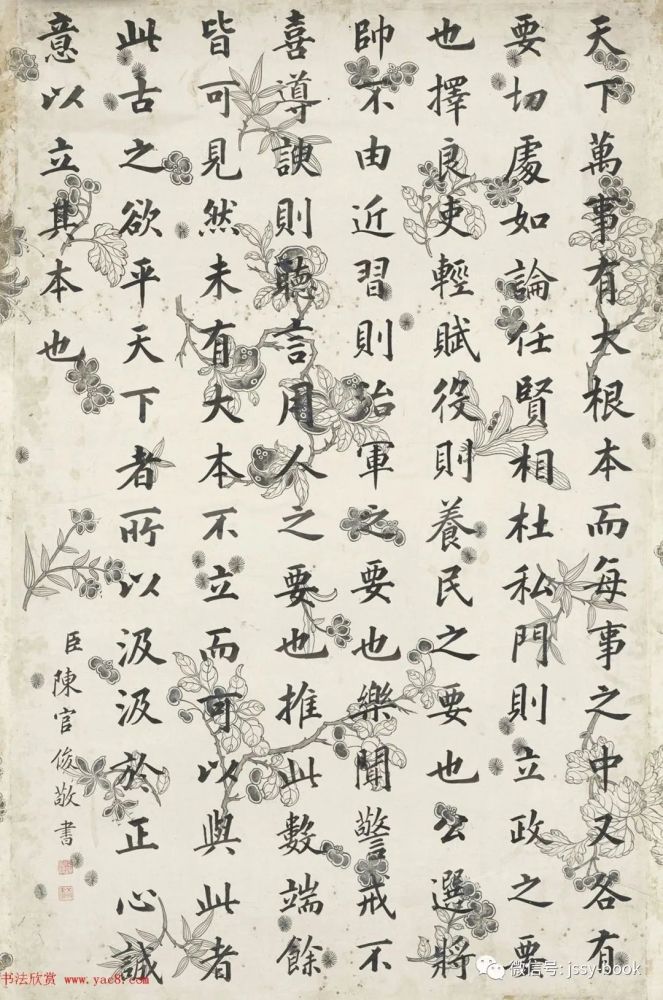 天下萬事有大根本而每事之中又各有
要切處如論任賢相杜私門則立政之要
也擇良吏輕賦役則養民之要也公選將
帥不由近習則治軍之要也樂聞警戒不
喜導諛則聽言用人之要也推此數端餘
皆可見然未有大本不立而可以與此者
此古之欲平天下者所以汲汲於正心誠
意以立其本也
臣陳官俊敬書
书法欣赏 www.yac8.com
微信号: jssy-book